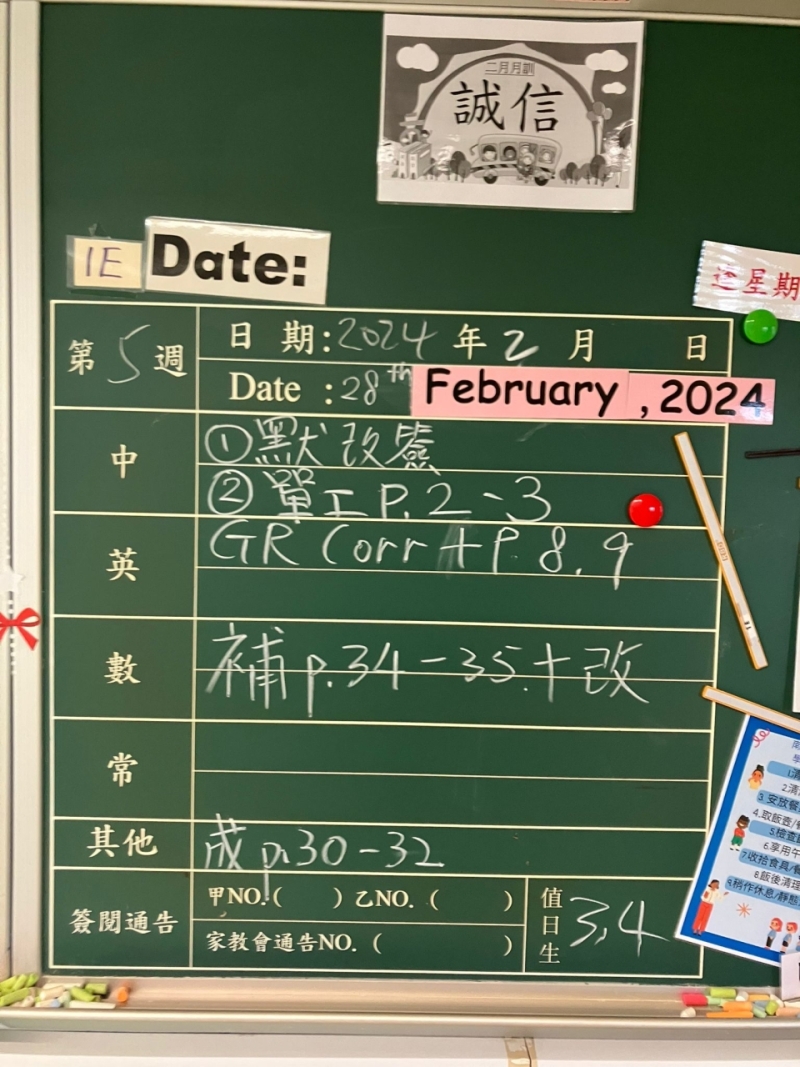 二月月訓
誠信
1E Date:
逢星期
第5週
日期:2024年2月 日
Date :28th February, 2024
中
①默改簽
②單工P.2-3
英
GR Corr + P.8,9
數
補p.34-35.+改
常
其他
成p.30-32
簽閱通告
甲NO.( ) 乙NO.( )
家教會通告NO.( )
值日生
3,4
2.清
3.安放餐
4.取飯壺/
5.檢查
6.享用午
7收拾食具/
8.飯後清理
9.稍作休息/靜態